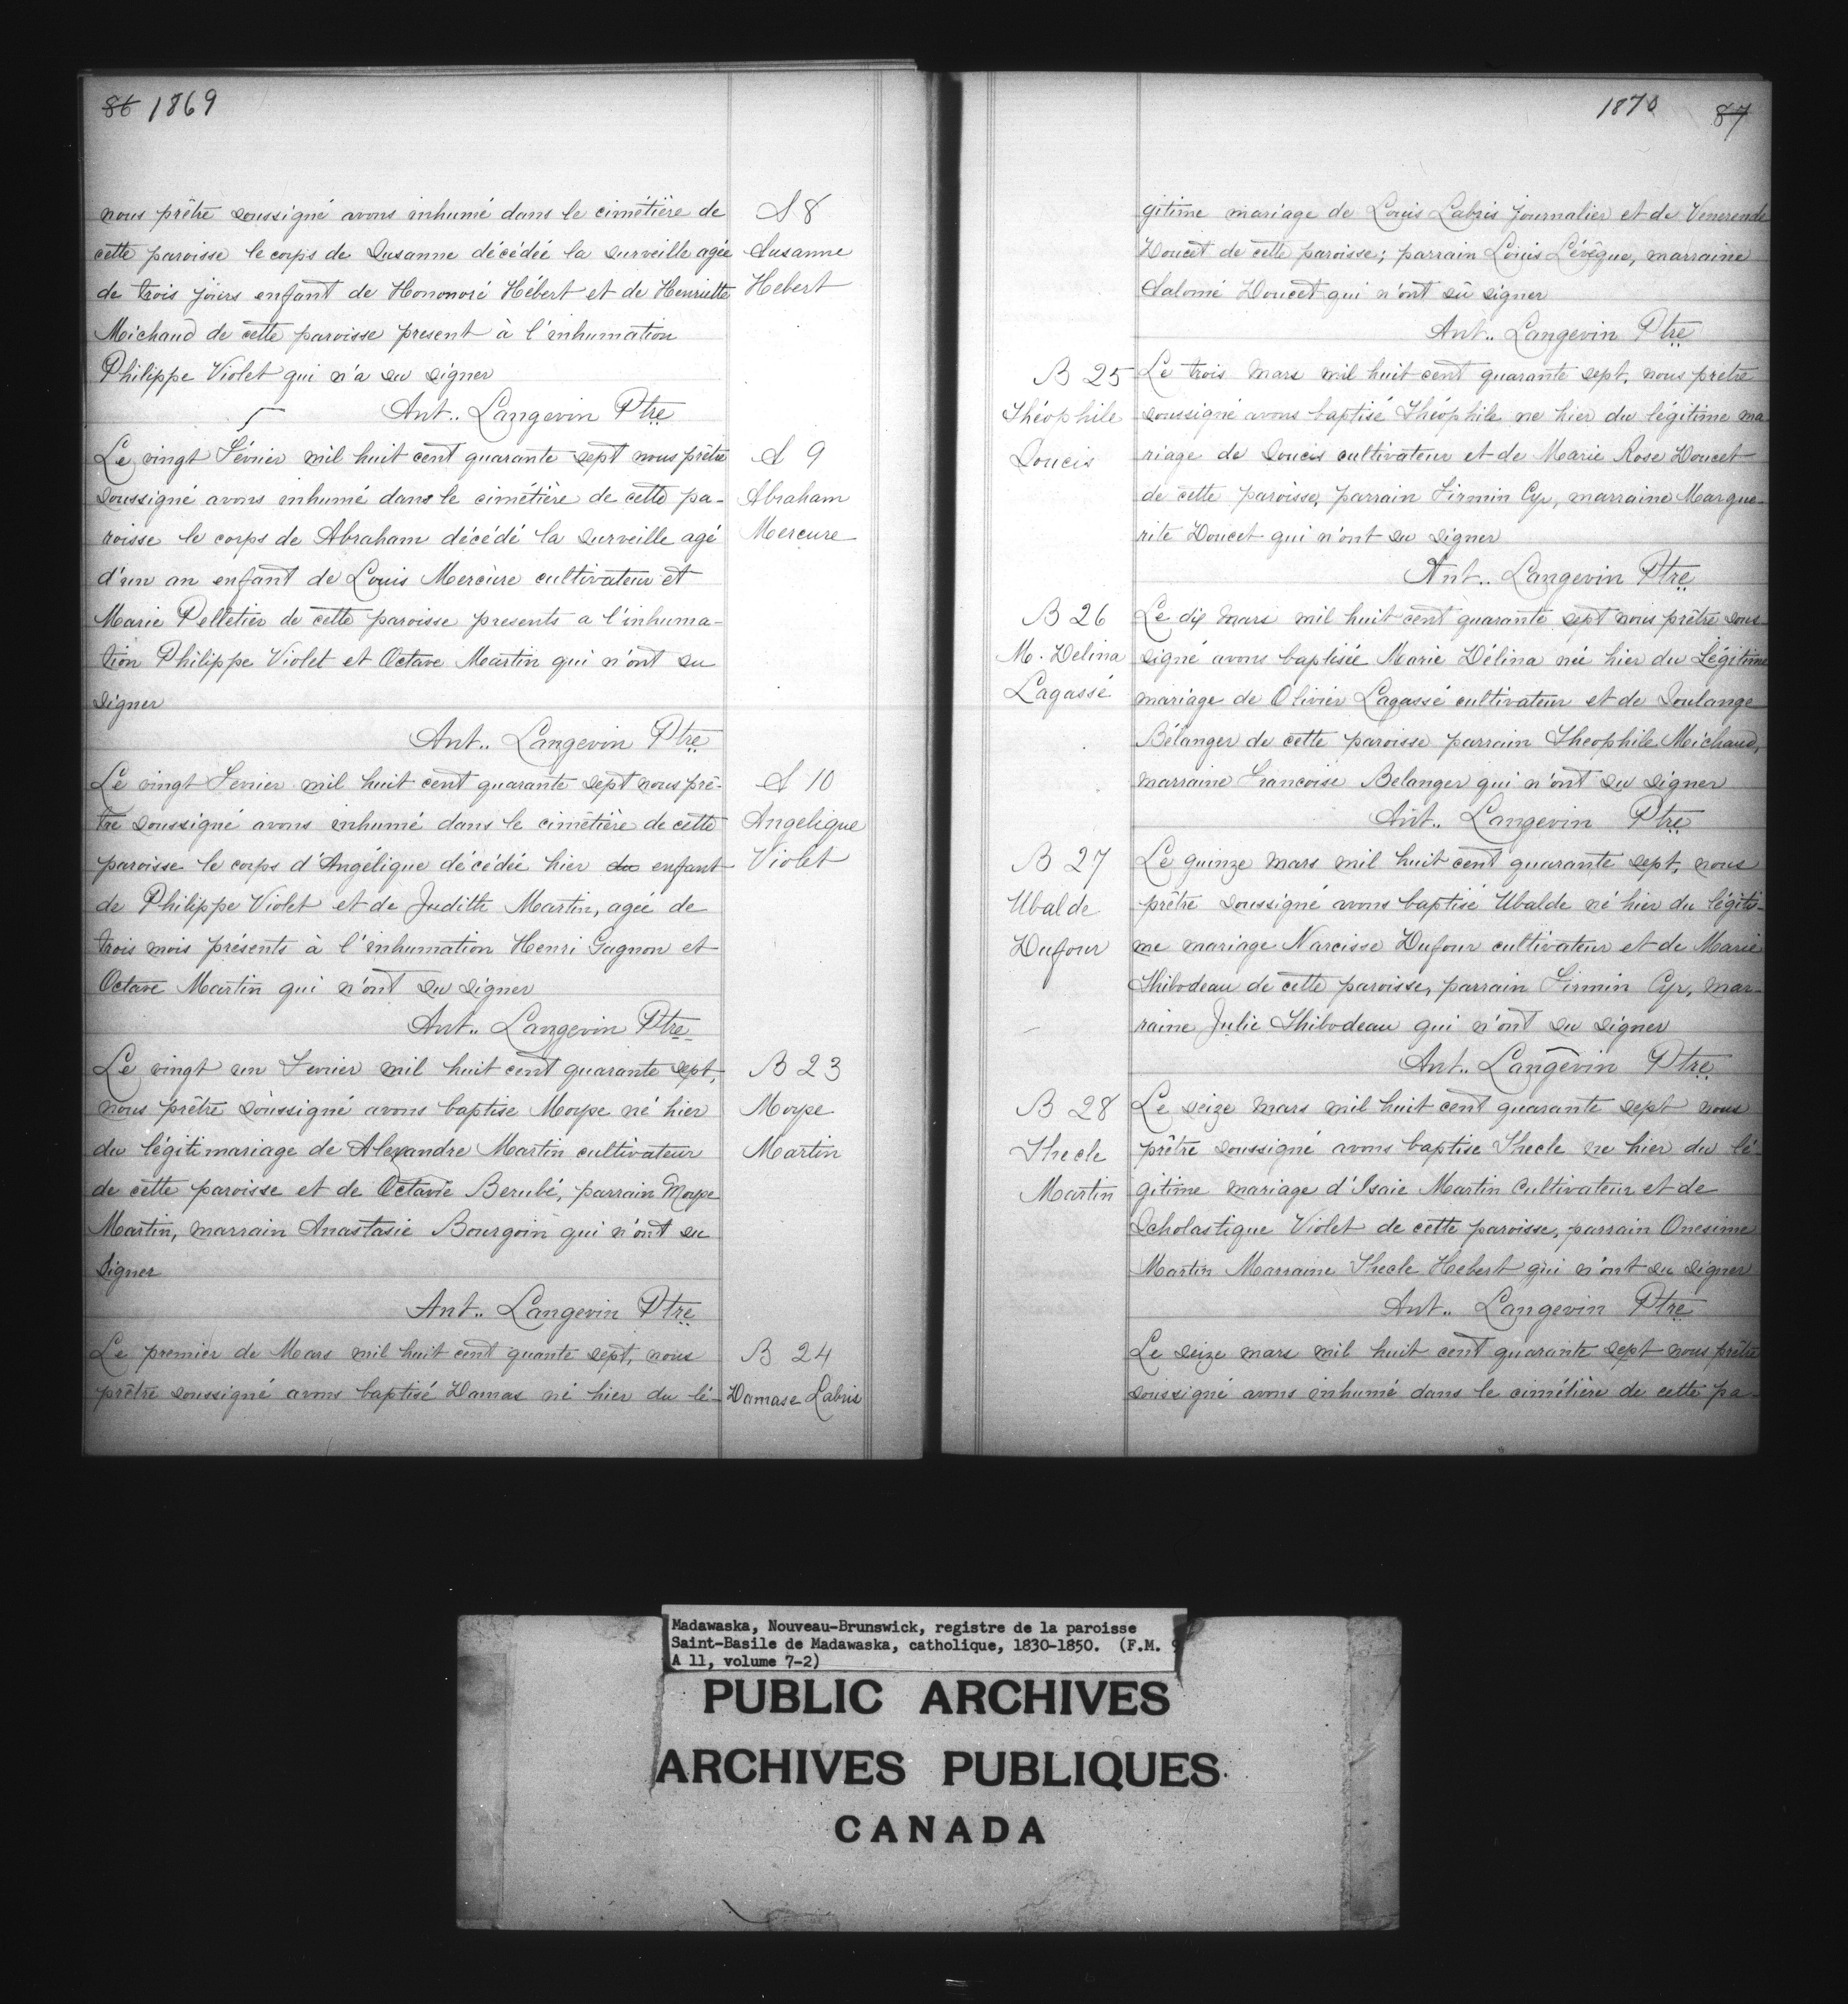 86 1869
nous prêtre soussigné avons inhumé dans le cimétière de
cette paroisse le corps de Susanne décédée la surveille agée
de trois jours enfant de Hononoré Hébert et de Henriette
Michaud de cette paroisse present à l'inhumation
Philippe Violet qui n'a su signer
Ant.. Langevin Ptre
S 8
Susanne
Hebert
Le vingt Février mil huit cent quarante sept nous prêtre
soussigné avons inhumé dans le cimétière de cette pa-
roisse le corps de Abraham décédé la surveille agé
d'un an enfant de Louis Mercure cultivateur et
Marie Pelletier de cette paroisse presents a l'inhuma-
tion Philippe Violet et Octave Martin qui n'ont su
signer
Ant.. Langevin Ptre
S 9
Abraham
Mercure
Le vingt Fevrier mil huit cent quarante sept nous prê-
tre soussigné avons inhumé dans le cimétière de cette
paroisse le corps d'Angélique décédée hier du enfant
de Philippe Violet et de Judith Martin, agée de
trois mois présents à l'inhumation Henri Gagnon et
Octave Martin qui n'ont su signer
Ant.. Langevin Ptre
S 10
Angelique
Violet
Le vingt un Fevrier mil huit cent quarante sept,
nous prêtre soussigné avons baptise Moype né hier
du légitimariage de Alexandre Martin cultivateur
de cette paroisse et de Octavie Berubé, parrain Moype
Martin, marrain Anastasie Bourgoin qui n'ont su
signer
Ant.. Langevin Ptre
B 23
Moype
Martin
Le premier de Mars mil huit cent quante sept, nous
prêtre soussigné avons baptisé Damas né hier du lé-
B 24
Damase Labris
1870 87
gitime mariage de Louis Labris journalier et de Venerende
Doucet de cette paroisse; parrain Louis Lévêque, marraine
Salomé Doucet qui n'ont sû signer
Ant.. Langevin Ptre
B 25
Théophile
Soucis
Le trois Mars mil huit cent quarante sept, nous prêtre
soussigné avons baptisé Théophile ne hier du légitime ma
riage de Soucis cultivateur et de Marie Rose Doucet
de cette paroisse, parrain Firmin Cyr, marraine Margue-
rite Doucet qui n'ont su signer
Ant.. Langevin Ptre
B 26
M. Delina
Lagassé
Le dix Mars mil huit cent quarante sept nous prêtre sous-
signé avons baptisée Marie Délina né hier du Légitime
mariage de Olivier Lagassé cultivateur et de Soulange
Bélanger de cette paroisse parrain Theophile Michaud,
marraine Francoise Belanger qui n'ont su signer
Ant.. Langevin Ptre
B 27
Ubalde
Dufour
Le quinze Mars mil huit cent quarante sept, nous
prêtre soussigné avons baptisé Ubalde né hier du légiti-
me mariage Narcisse Dufour cultivateur et de Marie
Thibodeau de cette paroisse, parrain Firmin Cyr, mar-
raine Julie Thibodeau qui n'ont su signer
Ant.. Langevin Ptre
B 28
Thecle
Martin
Le seize Mars mil huit cent quarante sept nous
prêtre soussigné avons baptise Thecle ne hier du lé-
gitime mariage d'Isaie Martin Cultivateur et de
Scholastique Violet de cette paroisse, parrain Onesime
Martin Marraine Thecle Hebert qui n'ont su signer
Ant.. Langevin Ptre
Le seize mars mil huit cent quarante sept nous prêtre
soussigné avons inhumé dans le cimétière de cette pa-
Madawaska, Nouveau-Brunswick, registre de la paroisse
Saint-Basile de Madawaska, catholique, 1830-1850. (F.M. 9
A 11, volume 7-2)
PUBLIC ARCHIVES
ARCHIVES PUBLIQUES
CANADA